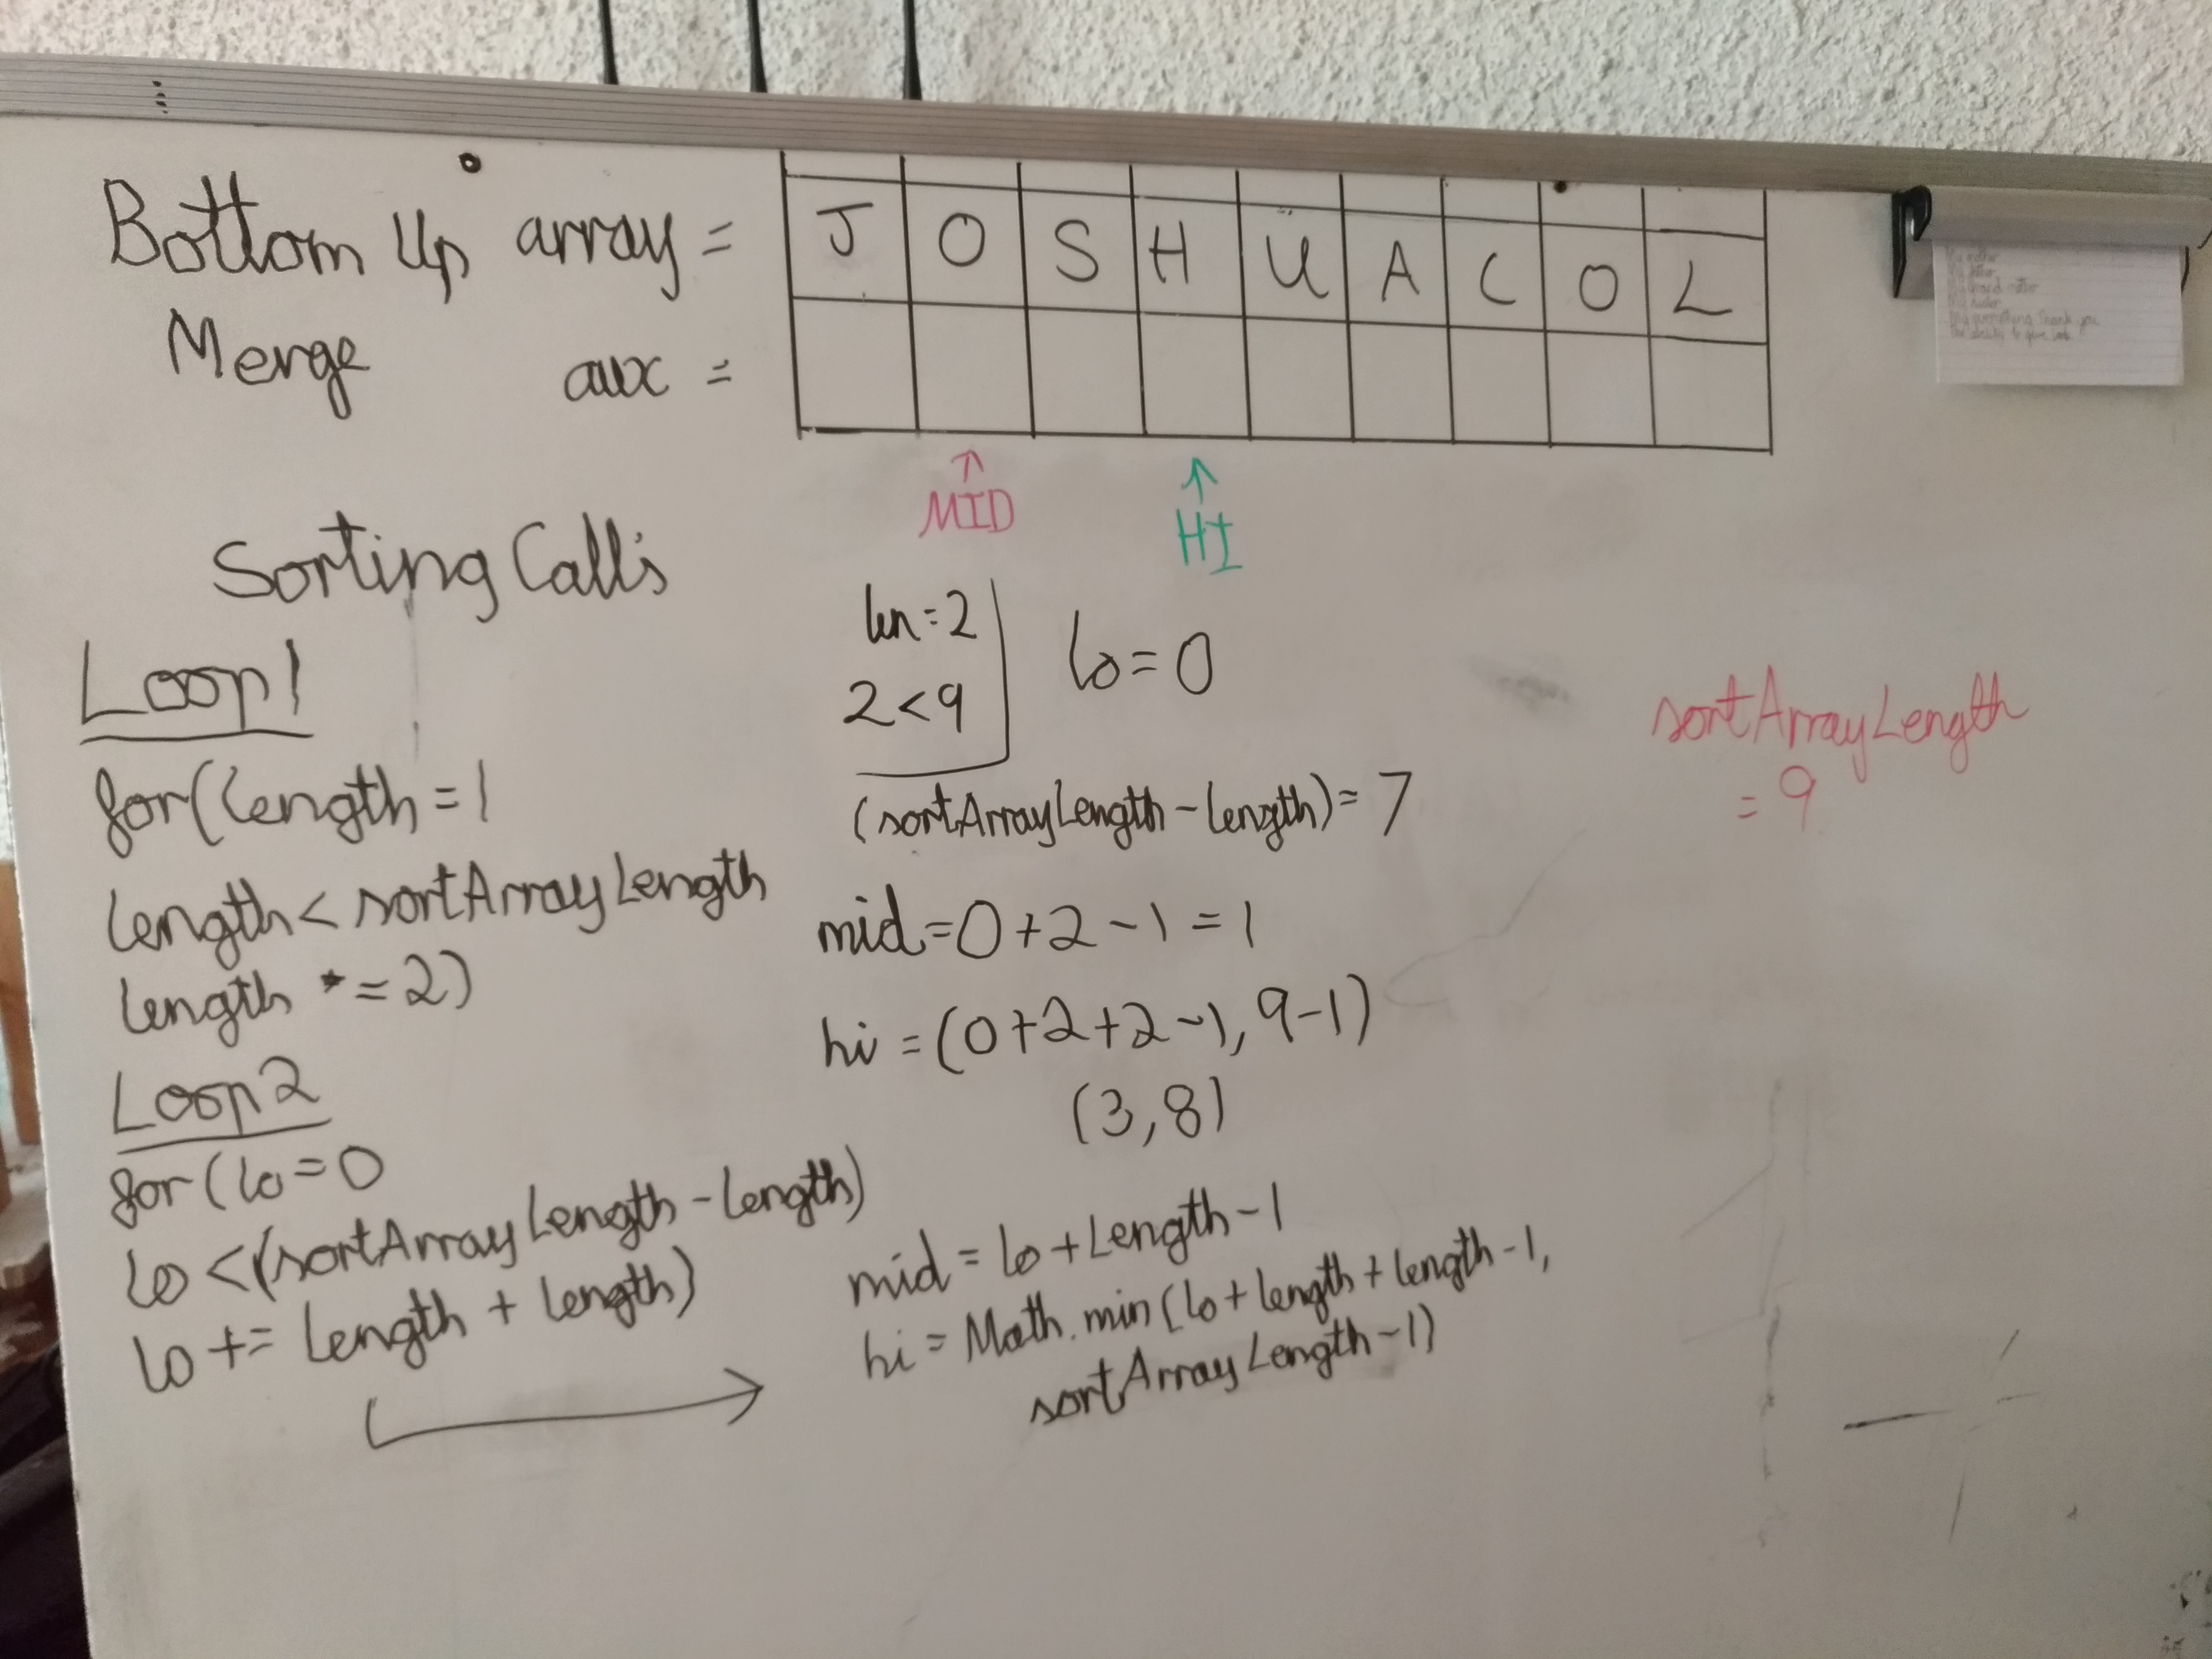 Bottom Up array = J O S H U A C O L
Merge aux =
MID HI
Sorting Calls
Loop 1
for(length = 1
length < sortArrayLength
length *= 2)
Loop 2
for (lo = 0
lo < (sortArrayLength - length)
lo += length + length)
len = 2
2 < 9
lo = 0
(sortArrayLength - length) = 7
mid = 0 + 2 - 1 = 1
hi = (0 + 2 + 2 - 1, 9 - 1)
(3, 8)
mid = lo + length - 1
hi = Math.min (lo + length + length - 1,
sortArrayLength - 1)
sortArrayLength
= 9